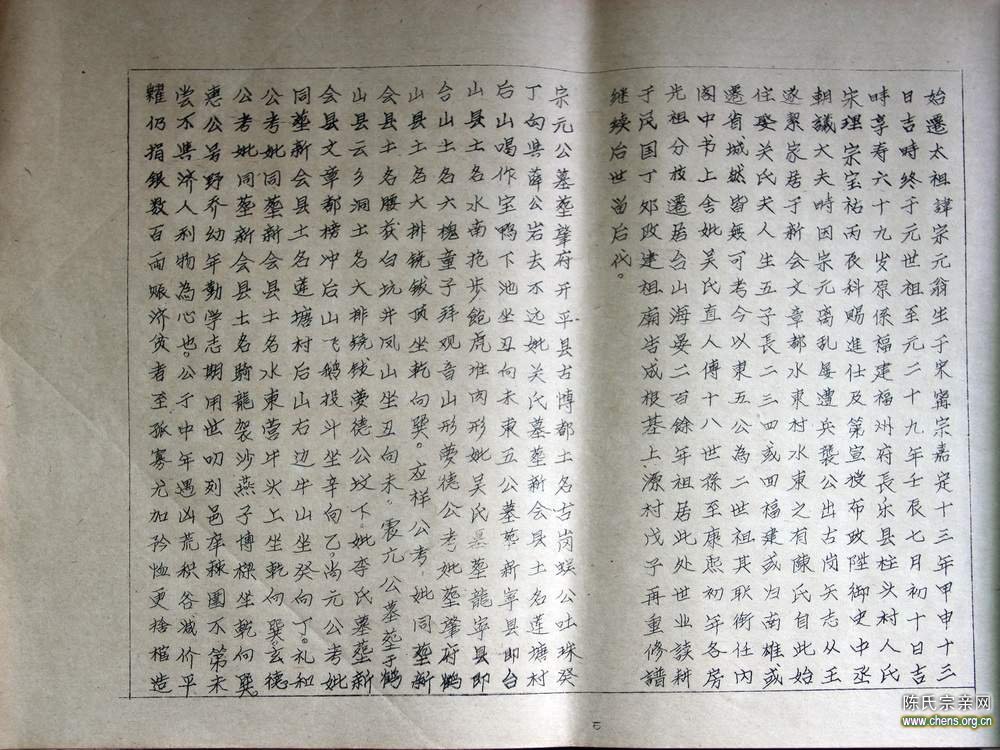 始遷太祖諱宗元翁生于宋寗宗嘉定十三年甲申十三
日吉時終于元世祖至元二十九年壬辰七月初十日吉
時享寿六十九岁原係福建福州府長乐县柱头村人氏
宋理宗宝祐丙辰科賜進仕及第宣授布政陞御史中丞
朝議大夫時因宗元离乱屡遭兵襲公出古岗矢志从王
遂絜家居于新会文章都水東村水東之有陳氏自此始
住娶关氏夫人生五子長二三四或四福建或归南雄或
遷省城然皆無可考今以東五公為二世祖其职衔任内
阁中书上舍妣吴氏直人傳十八世孫至康熙初年各房
光祖分枝遷居台山海晏二百餘年祖居此处世业読耕
于民国丁邜政建祖廟告成根基上源村戊子再重修譜
继续后世畄后代。
宗元公墓塟肇府开平县古博都土名古岗蜈公吐珠癸
丁向與薛公岩去不远妣关氏墓塟新会县土名莲塘村
后山喝作宝鸭下池坐丑向未東五公墓塟新寧县即台
山县土名水南抱步飽虎班肉形妣吴氏墓塟龍寧县即
台山土名六槐童子拜观音山形夢德公考妣塟肇府鶴
山县土名大排镜鈸顶坐乾向巽。应祥公考妣同塟新
会县土名腰荻白坑井凤山坐丑向未。震亢公墓塟于鶴
山县云乡洞土名大排镜钹夢德公坟下。妣李氏墓塟新
会县文章都榜冲后山飞鹅投斗坐辛向乙。尚元公考妣
同塟新会县土名莲塘村后山右边牛山坐癸向丁。礼和
公考妣同塟新会县土名水東营牛头上坐乾向巽玄德
公考妣同塟新会县土名騎龍袈沙燕子博樑坐乾向巽
惠公号野乔幼年勤学志期用世叨列邑庠稌圃不第未
尝不與济人利物為心也。公于中年遇凶荒积各减价平
糶仍捐銀数百両赈济贫者至孤寡尤加矜恤更捨棺造
陈氏宗亲网
www.chens.org.cn